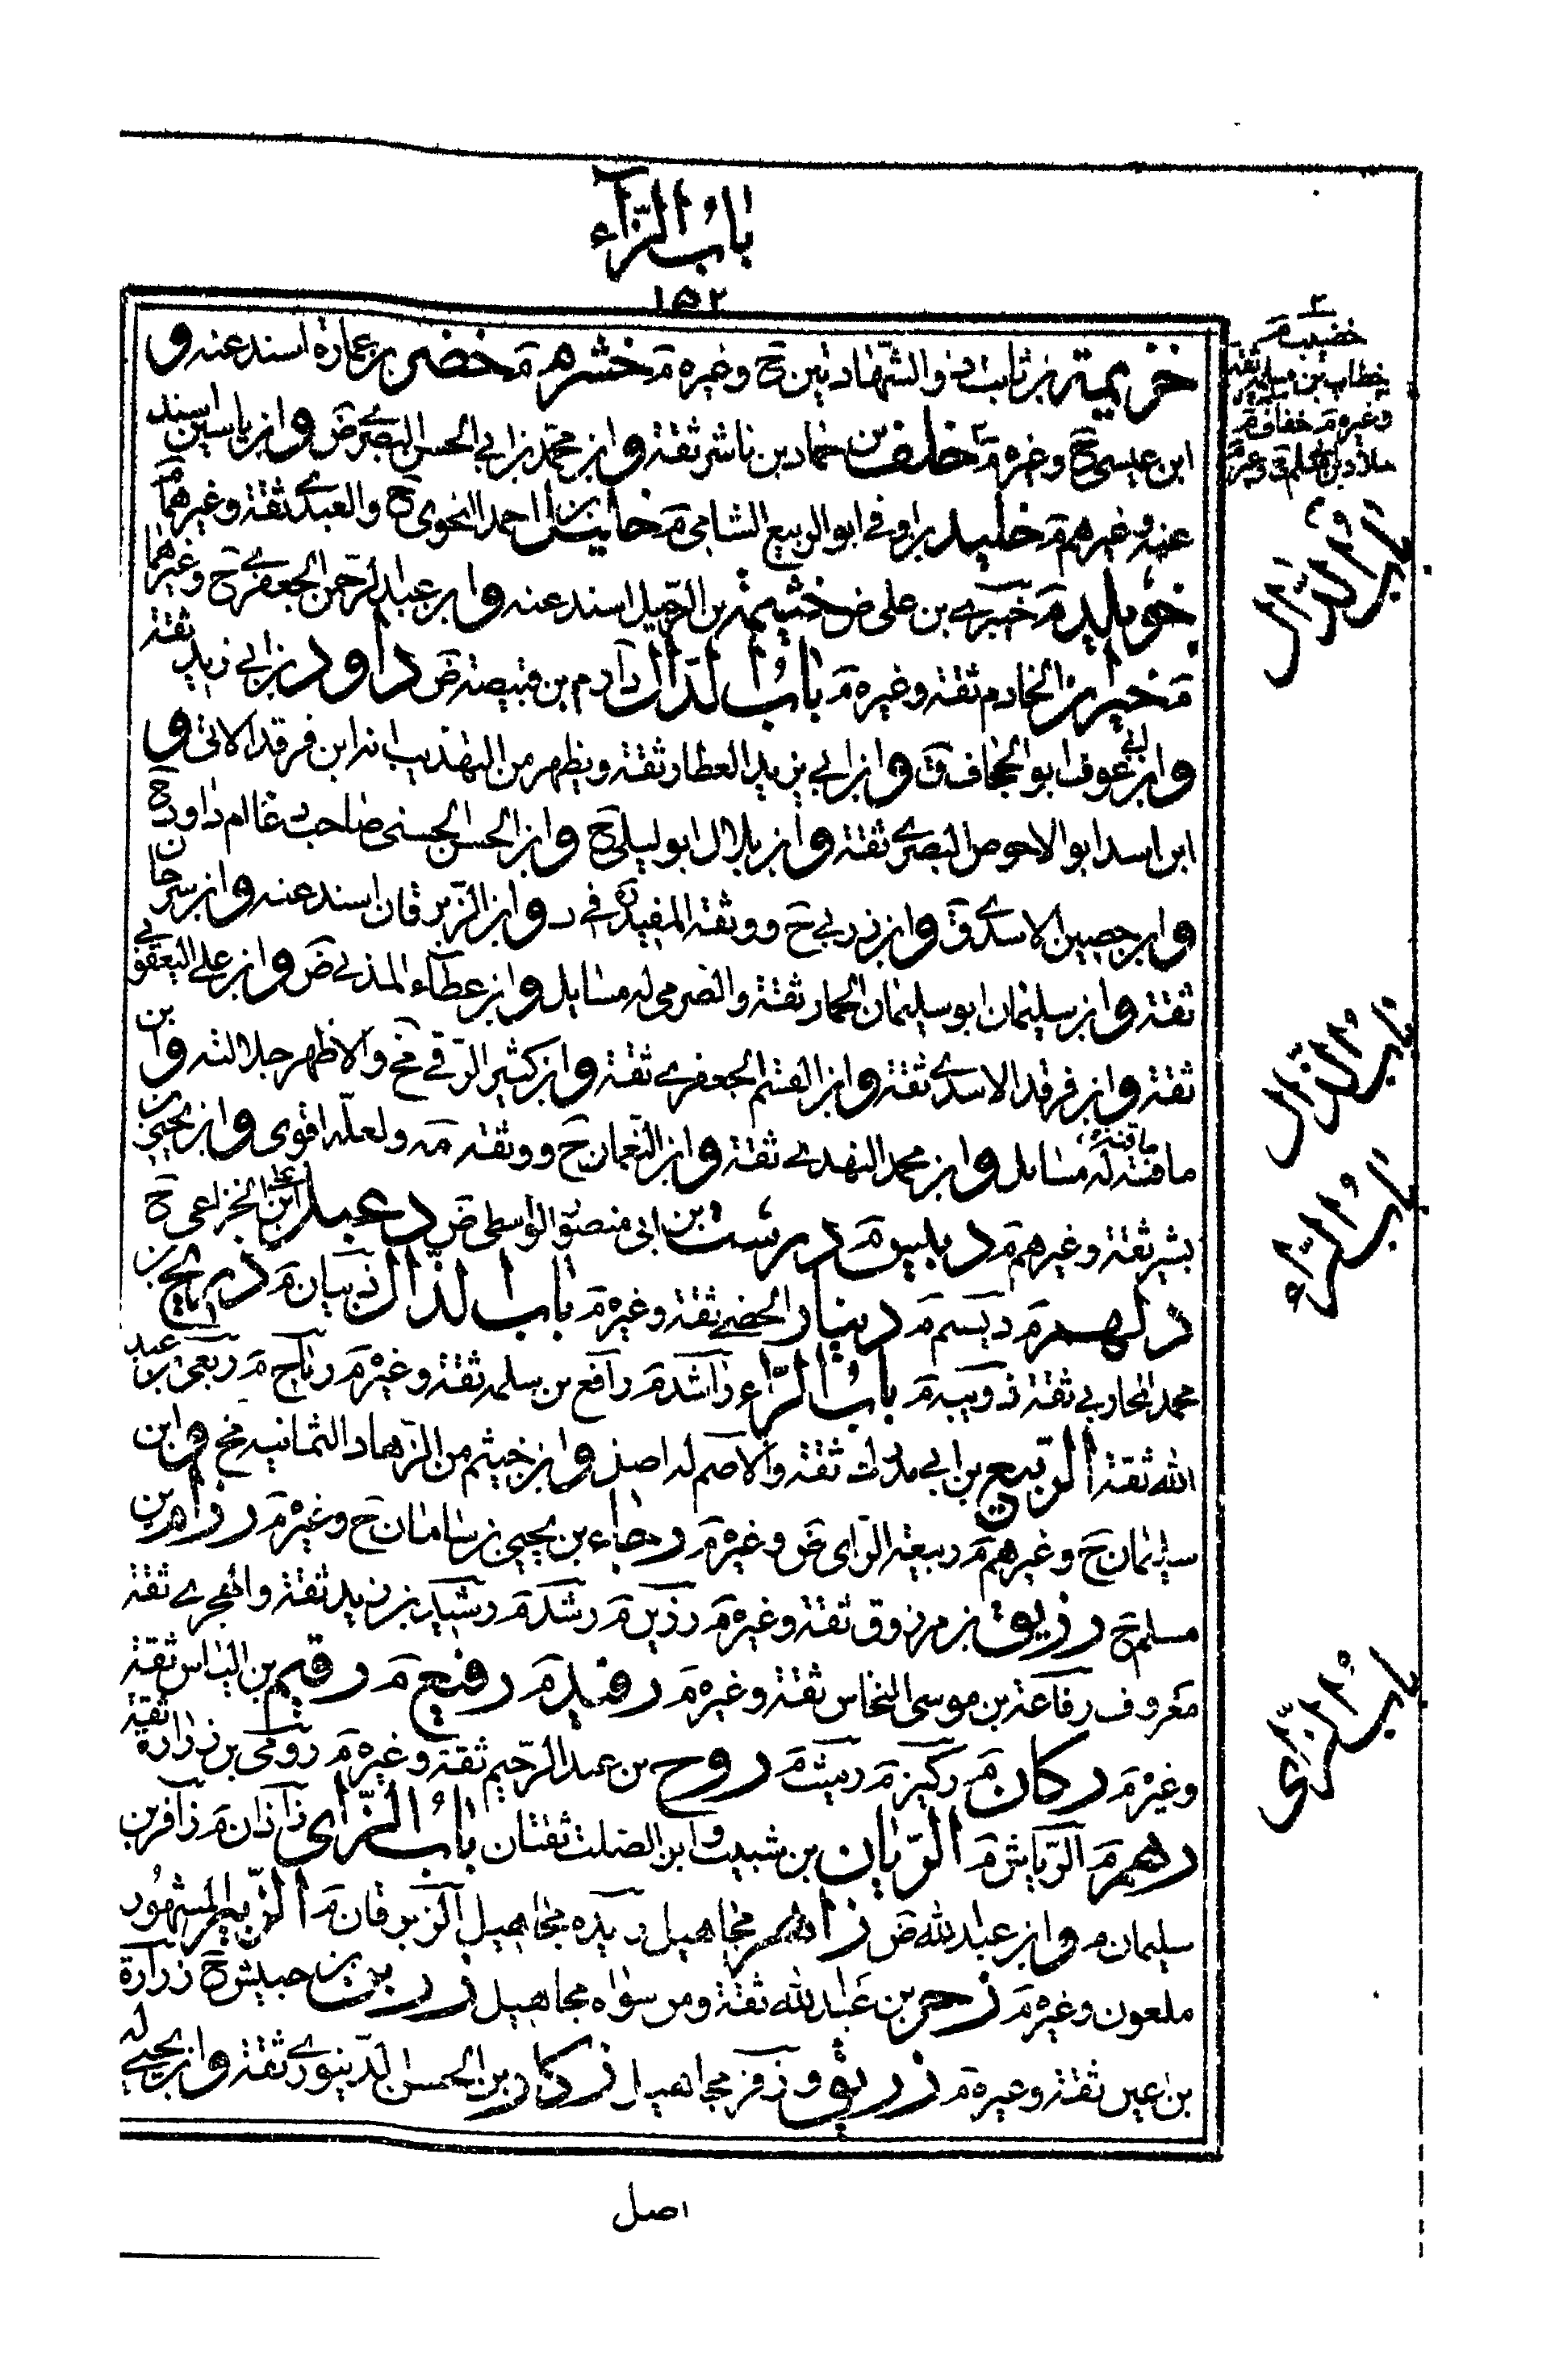 باب الزاء
١٥٢
خزيمة بن ثابت ذو الشهادتين ح وغيره م خشرم م خضر بن عمارة اسند عنه و
ابن عيسى ح وغيره م خلف بن حماد بن ناشر ثقة وابن محمد بن ابي الحسن البصري ض وابن ياسين اسند
عنه وغيرهم م خليد بن اوفى ابو الربيع الشامي م خليل بن احمد النحوي ح والعبدي ثقة وغيرهما م
خويلد م خيبري بن علي ض خثيمة بن الرحيل اسند عنه وابن عبد الرحمن الجعفري ح وغيرهما
م خيران الخادم ثقة وغيره م باب الدال دادم بن قبيصة ض داود بن ابي زيد ثقة
وابن ابي عوف ابو الجحاف ق وابن ابي يزيد العطار ثقة ويظهر من التهذيب انه ابن فرقد الاتي و
ابن اسد ابو الاحوص البصري ثقة وابن بلال ابو ليلى ح وابن الحسن الحسني صاحب دعاء ام داود ح
وابن حصين الاسدي ق وابن زربي ح ووثقه المفيد ره في د وابن الزبرقان اسند عنه وابن سرحان
ثقة وابن سليمان ابو سليمان الحمار ثقة والضرمي له مسايل وابن عطاء المدني ض وابن علي اليعقوبي
ثقة وابن فرقد الاسدي ثقة وابن القسم الجعفري ثقة وابن كثير الرقي مخ والاظهر جلالته وابن
مافنة له مسايل وابن محمد النهدي ثقة وابن النعمان ح ووثقه مه ولعله اقوى وابن يحيى بن
بشير ثقة وغيرهم م دبيس م درست بن ابي منصور الواسطي ض دعبل ابن علي الخزاعي ح
دلهم م ديسم م دينار الخصي ثقة وغيره م باب الذال ذبيان م ذريح بن
محمد المحاربي ثقة ذويبه م باب الراء راشد م رافع بن سلمه ثقة وغيره م رباح م ربعي ابن عبد
الله ثقة الربيع بن ابي مدرك ثقة والاصم له اصل وابن خيثم من الزهاد الثمانيه مخ وابن
سليمان ح وغيرهم م ربيعة الراى ض وغيره م رجاء بن يحيى بن سامان ح وغيره م رزام بن
مسلم ح رزيق بن مرزوق ثقة وغيره م رزين م رشد م رشيد بن زيد ثقة والهجري ثقة
معروف رفاعة بن موسى النخاس ثقة وغيره م رفيد م رفيع م رقيم بن الياس ثقة
وغيره م ركان م ركيز م رميث م روح بن عبد الرحيم ثقة وغيره م رومي بن زرارة ثقة
رهم م الرياش م الريان بن شبيب وابن الصلت ثقتان باب الزاي زاذان م زافر بن
سليمان م وابن عبد الله ض زاهر مجاهيل زبده مجاهيل الزبرقان م الزبير المشهور
ملعون وغيره م زحر بن عبد الله ثقة ومن سواه مجاهيل زر بن حبيش ح زرارة
بن اعين ثقة وغيره م زريق وزفر مجاهيل زكار بن الحسن الدينوري ثقة وابن يحيى له
اصل
خضيب م
خطاب بن مسلمه ثقة
وغيره م خفاف م
باب الدال
باب الذال
باب الراء
باب الزاي